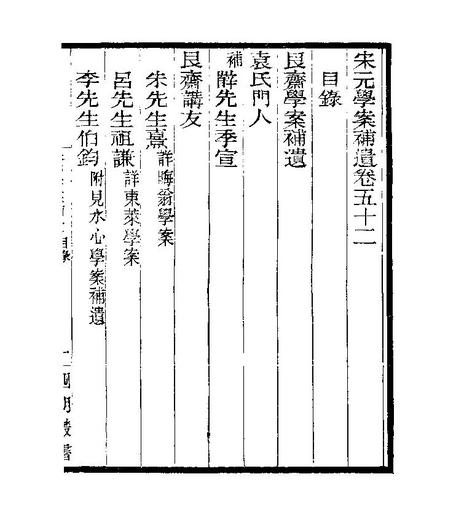 宋元學案補遺卷五十二
目錄
艮齋學案補遺
袁氏門人
補薛先生季宣
艮齋講友
朱先生熹詳晦翁學案
呂先生祖謙詳東萊學案
李先生伯鈞附見水心學案補遺